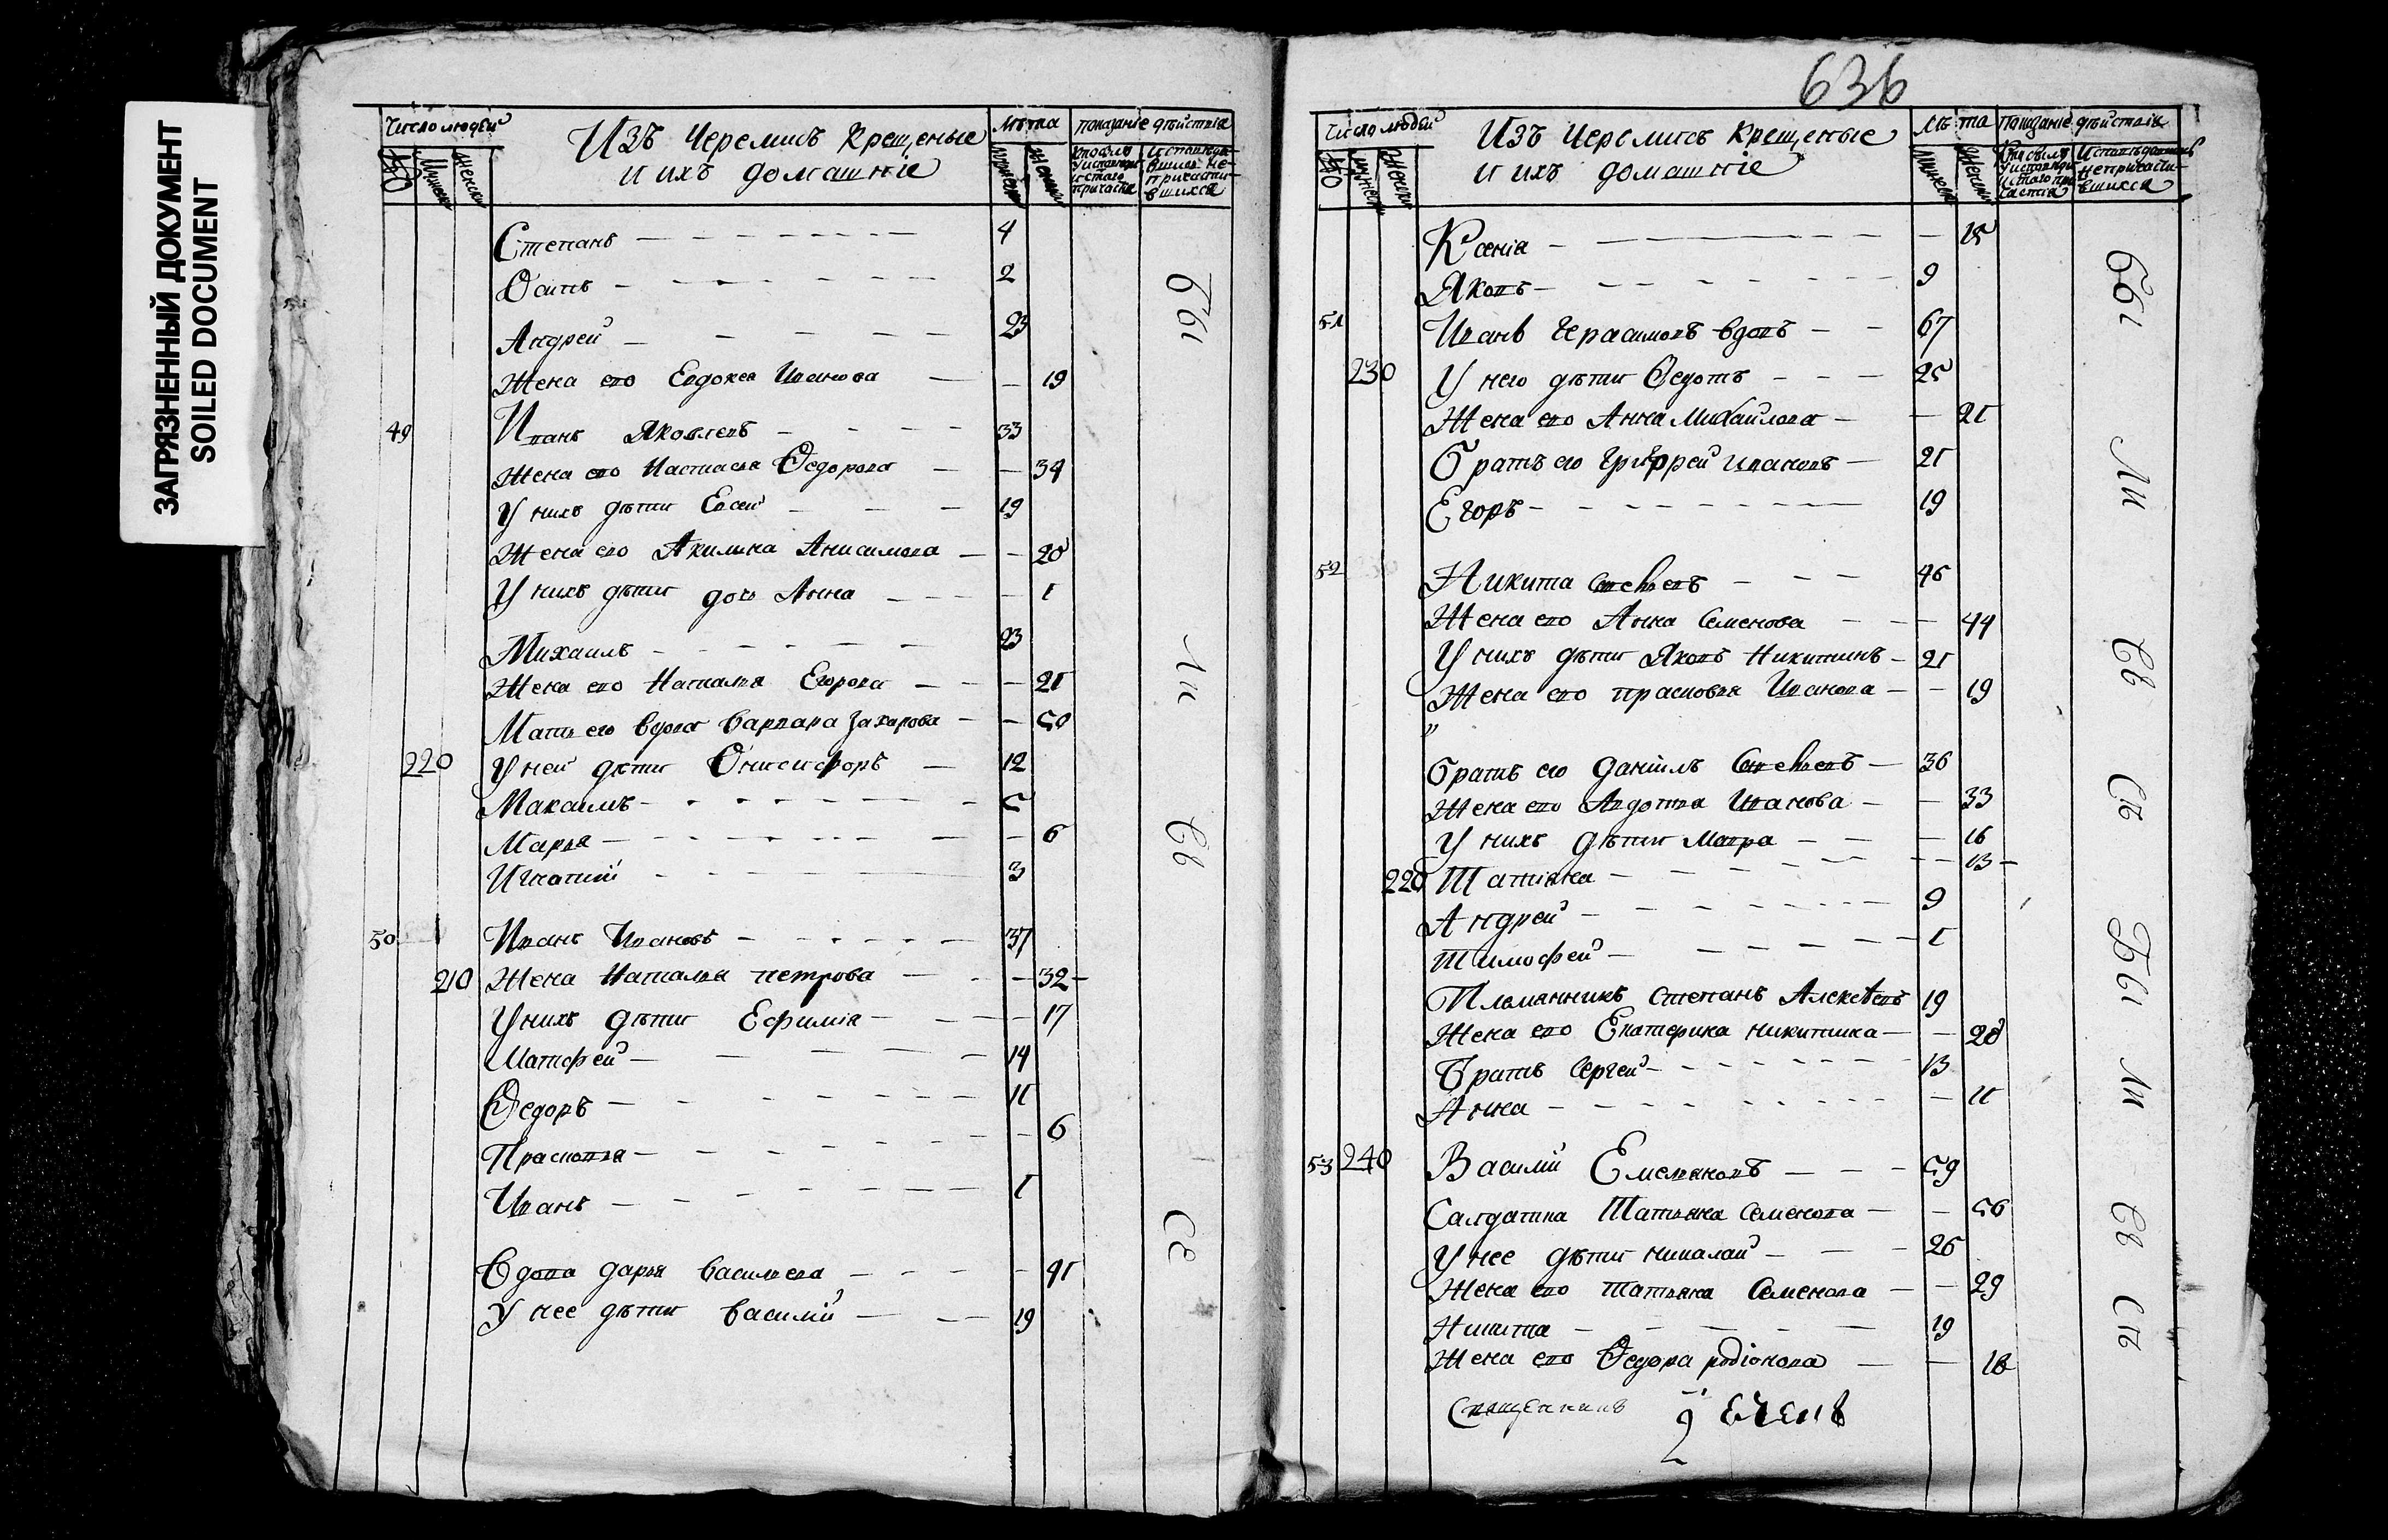 ЗАГРЯЗНЕННЫЙ ДОКУМЕНТ
SOILED DOCUMENT
Число людей
Изъ Черемисъ Крещеные
и ихъ домашніе
Лѣта
показаніе дѣйствія
Степанъ 4
Осипъ 2
Андрей 23
Жена его Евдокея Иванова 19
49 Иванъ Яковлевъ 33
Жена его Настасья Ѳедорова 34
У нихъ дѣти Евсей 19
Жена его Акилина Анисимова 20
У нихъ дѣти дочь Анна 1
Михаилъ 23
Жена его Наталья Егорова 21
Мать его вдова Варвара Захарова 50
220 У ней дѣти Онисифоръ 12
Макаимъ 5
Марья 6
Игнатий 3
50 Иванъ Ивановъ 37
210 Жена Наталья петрова 32
У нихъ дѣти Ефимія 17
Матфей 14
Ѳедоръ 11
Прасковья 6
Иванъ 1
Вдова дарья Васильева 41
У нее дѣти Василий 19
Бы
ли
Въ
636
Число людей
Изъ Черемисъ Крещеные
и ихъ домашніе
Лѣта
показаніе дѣйствія
Ксенія 15
Яковъ 9
51 Иванъ Герасимовъ вдовъ 67
230 У него дѣти Ѳедотъ 25
Жена его Анна Михайлова 21
Братъ его Ивановъ 21
Егоръ 19
52 Никита 46
Жена его Анна Семенова 44
У нихъ дѣти Яковъ Никитинъ 21
Жена его прасковья Иванова 19
"
Братъ его Даніилъ 36
Жена его Авдотья Иванова 33
У нихъ дѣти Мавра 16
220 Татіяна 13
Андрей 9
Тимофей 1
Племянникъ Степанъ Алексѣевъ 19
Жена его Екатерика никитина 20
Братъ Сергей 13
Анна 11
53 240 Василий Емельяновъ 59
Салдатка Татьяна Семенова 56
У нее дѣти николай 26
Жена его татьяна Семенова 29
Никита 19
Жена его Ѳедора родіонова 18
Священникъ
Бы
Ли
Въ
Бы
Ли
Въ